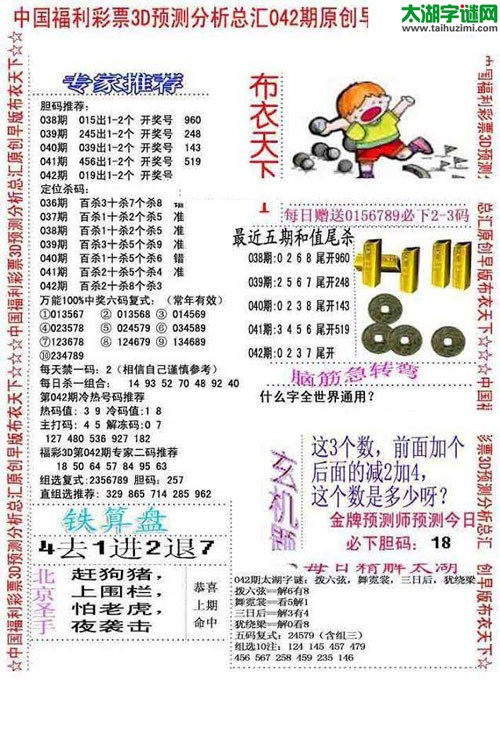 中国福利彩票3D预测分析总汇042期原创早
太湖字谜网
www.taihuzimi.com
☆中国福利彩票3D预测分析总汇原创早版布衣天下☆☆
专家推荐
胆码推荐:
038期 015出1-2个 开奖号 960
039期 245出1-2个 开奖号 248
040期 039出1-2个 开奖号 143
041期 456出1-2个 开奖号 519
042期 019出1-2个 开奖号
定位杀码:
036期 百杀3十杀7个杀8
037期 百杀2十杀5个杀5 准
038期 百杀1十杀7个杀5 准
039期 百杀1十杀9个杀5 准
040期 百杀9十杀5个杀6 错
041期 百杀1十杀5个杀4 准
042期 百杀2十杀8个杀3
万能100%中奖六码复式: (常年有效)
①013567 ② 013568 ③ 014569
④023578 ⑤ 024579 ⑥ 034589
⑦123678 ⑧ 124679 ⑨ 134689
⑩234789
每天禁一码: 2(相信自己谨慎参考)
每日杀一组合: 14 93 52 70 48 92 40
第042期冷热号码推荐
热码值: 3 9 冷码值: 1 8
主打码: 4 5 解冻码: 0 7
127 480 536 927 182
福彩3D第042期专家二码推荐
18 50 64 57 84 95 63
组选复式: 2356789 胆码: 257
直组选推荐: 329 865 714 285 962
铁算盘
4去1进2退7
北京圣手
赶狗猪，
上围栏，
怕老虎，
夜袭击
恭喜
上期
命中
布衣天下
每日赠送0156789必下2-3码
最近五期和值尾杀
038期: 0 2 6 8 尾开960
039期: 0 3 4 7 尾开248
040期: 0 2 3 8 尾开143
041期: 3 4 5 6 尾开519
042期: 0 2 3 7 尾开
脑筋急转弯
什么字全世界通用?
玄机题
这3个数，前面加个
后面的减2加4，
这个数是多少呀？
金牌预测师预测今日
必下胆码: 18
每日精解太湖
042期太湖字谜: 拨六弦，舞霓裳，三日后，犹绕梁
拨六弦==解6有8
舞霓裳==看5解1
三日后==解3有4
犹绕梁==解0看8
五码复式: 24579 (含组三)
组选10注: 124 145 457 479
456 567 258 459 235 146